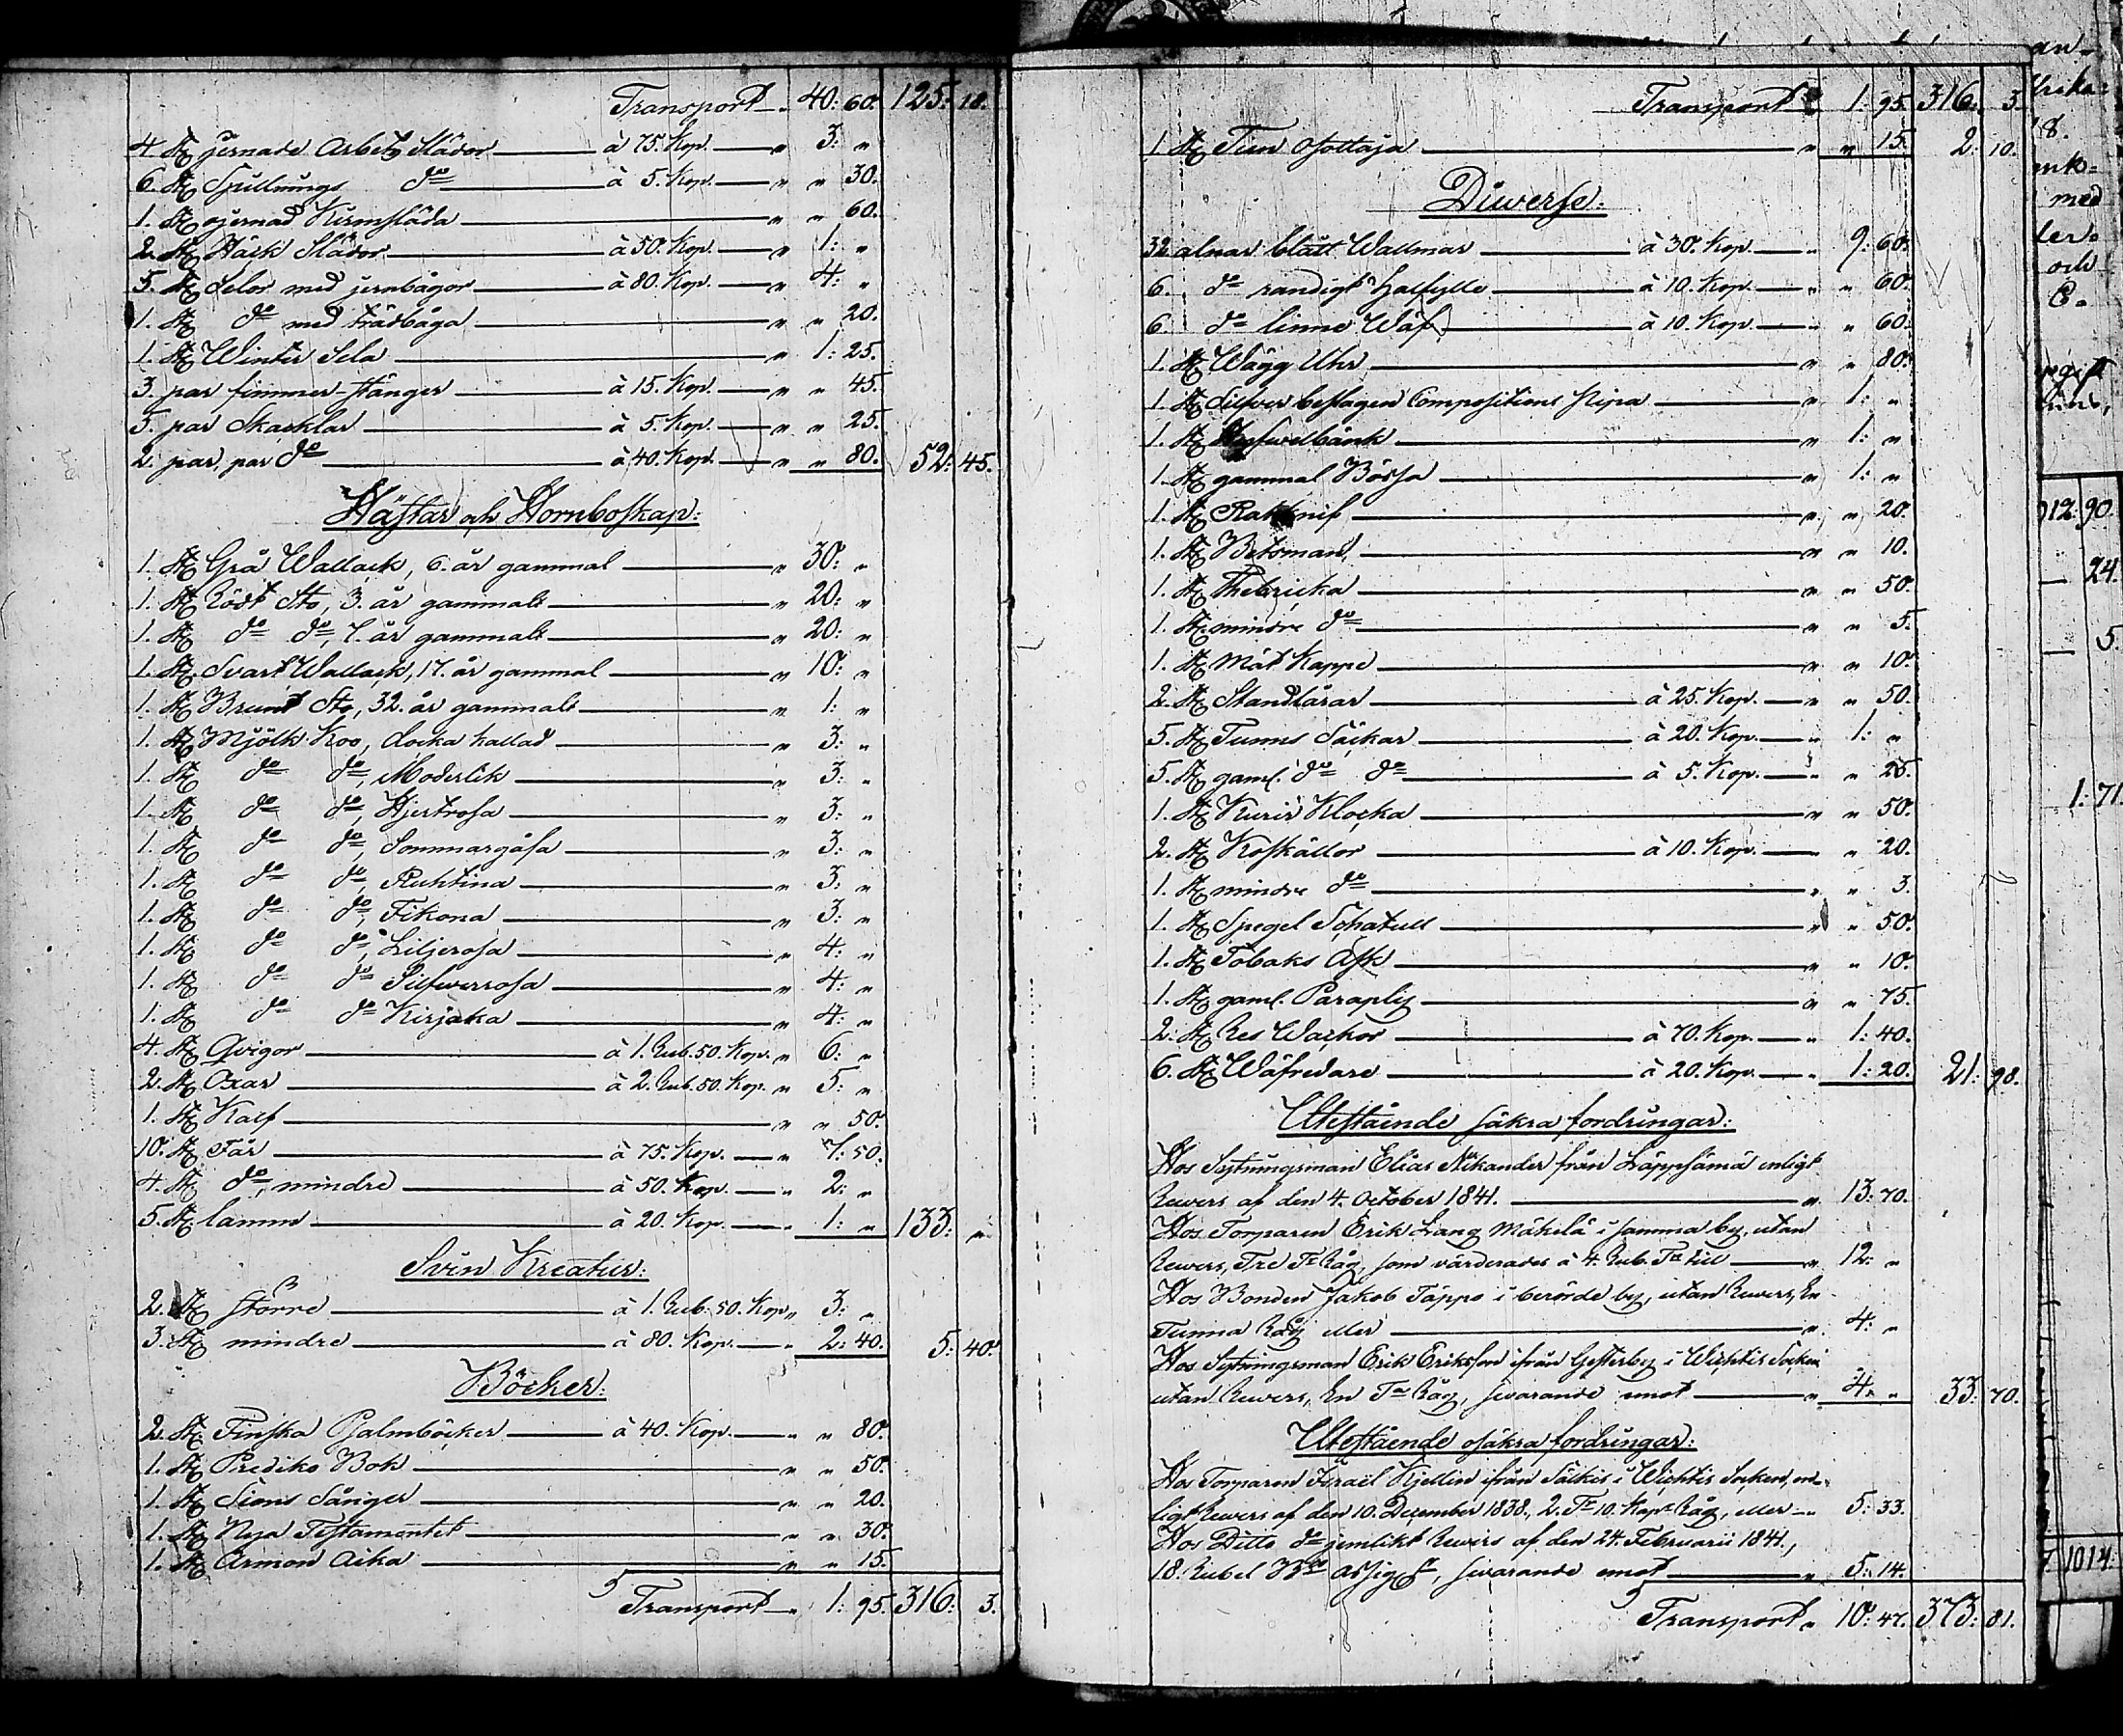 Transport „ 40: 60. 125: 18.
4 St. jernade Arbets Slädor à 75. Kop. „ 3: „
6. St. Spillnings do à 5. Kop. „ „ 30.
1. St. ojernad Kirmsläda „ „ 60.
2. St. Häck Slädor à 50. Kop. „ 1: „
5. St. Selor med jernbågor à 80. Kop. „ 4: „
1. St. do med trädbåga „ „ 20.
1. St. Winter Sela „ 1: 25.
3. par fimmer-stänger à 15. Kop. „ „ 45.
5. par Skacklar à 5. Kop. „ „ 25.
2. par, par do à 40. Kop. „ „ 80. 52: 45.
Hästar och Hornboskap:
1. St. Grå Wallack, 6. år gammal „ 30: „
1. St. Rödt Sto, 3. år gammalt „ 20: „
1. St. do do, 7. år gammalt „ 20: „
1. St. Svart Wallack, 17. år gammal „ 10: „
1. St. Brunt Sto, 32. år gammalt „ 1: „
1. St. Mjölk Koo, Docka kallad „ 3: „
1. St. do do, Moderlik „ 3: „
1. St. do do, Hjertrosa „ 3: „
1. St. do do, Sommargåfa „ 3: „
1. St. do do, Ruhtina „ 3: „
1. St. do do, Fikona „ 3: „
1. St. do do, Liljerosa „ 4: „
1. St. do do Silfwerrosa „ 4: „
1. St. do do Kirjaka „ 4: „
4. St. Qvigor à 1. Rub. 50. Kop. „ 6: „
2. St. Oxar à 2. Rub. 50. Kop. „ 5: „
1. St. Kalf „ „ 50.
10. St. Får à 75. Kop. „ 7: 50.
4. St. do, mindre à 50. Kop. „ 2: „
5. St. lamm à 20. Kop. „ 1: „ 133: „
Svin Kreatur:
2. St. större à 1. Rub. 50. Kop „ 3: „
3. St. mindre à 80. Kop. „ 2: 40. 5: 40.
Böcker:
2. St. Finska Psalmböcker à 40. Kop. „ „ 80.
1. St. Prediko Bok „ „ 50.
1. St. Sions Sånger „ „ 20.
1. St. Nya Testamentet „ „ 30.
1. St. Armon Aika „ „ 15.
Transport „ 1: 95. 316: 3.
Transport „ 1: 95. 316: 3.
1 St. Tiun Ajottaja „ „ 15. 2: 10.
Diwerse:
32 alnar blått Wallmar à 30. Kop. „ 9: 60.
6. do randigt Halfylle à 10. Kop. „ „ 60.
6. do linne Wäf à 10. Kop. „ „ 60.
1. St. Wägg Uhr „ „ 80.
1. St. Silfver beslagen Compositions Pipa „ 1: „
1. St. Hyfwelbänk „ 1: „
1. St. gammal Bössa „ 1: „
1. St. Rakknif „ „ 20.
1. St. Betsman „ „ 10.
1. St. Thebricka „ „ 50.
1. St. mindre do „ „ 5.
1. St. Mät Kappe „ „ 10.
2. St. Standlårar à 25. Kop. „ „ 50.
5. St. Tunns Säckar à 20. Kop. „ 1: „
5. St. gaml. do do à 5. Kop. „ „ 25.
1. St. Kurir Klocka „ „ 50.
2. St. Koskällor à 10. Kop. „ „ 20.
1. St. mindre do „ „ 3.
1. St. Spegel Schatull „ „ 50.
1. St. Tobaks Ask „ „ 10.
1. St. gaml. Paraply „ „ 75.
2. St. Res Wackor à 70. Kop. „ 1: 40.
6. St. Wäfredare à 20. Kop. „ 1: 20. 21: 98.
Utestående säkra fordringar:
Hos Sytningsman Elias Nikander från Läppsämä enligt
Revers af den 4. October 1841. „ 13: 70.
Hos Torparen Erik Lang Mäkelä i samma by, utan
Revers, Tre Tr Råg, som värderades à 4. Rub. Tn till „ 12: „
Hos Bonden Jakob Täppo i berörde by, utan Revers, En
Tunna Råg eller „ 4: „
Hos Sytningsman Erik Eriksson ifrån Gesterby i Wichtis Socken
utan Revers, En Tn Råg, swarande emot „ 4: „ 33: 70.
Utestående osäkra fordringar:
Hos Torparen Israël Kjellin ifrån Sälkis i Wichtis Socken, en-
ligt Revers af den 10. December 1838, 2. Tr 10. Kapr Råg, eller „ 5: 33.
Hos Ditto do jemlikt Revers af den 24. Februarii 1841,
18. Rubel Bco Assigr, swarande emot „ 5: 14.
Transport „ 10: 47. 373: 81.
med
och
12: 90.
24.
5.
1: 71
1014: